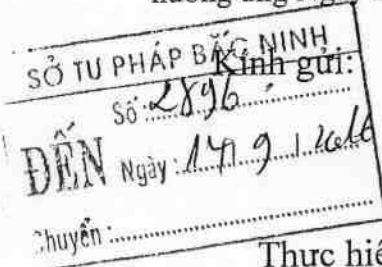 SỞ TƯ PHÁP BẮC NINH
Kính gửi:
Số: 2896
ĐẾN Ngày: 14/9/2016
Chuyển:
Thực hiệ